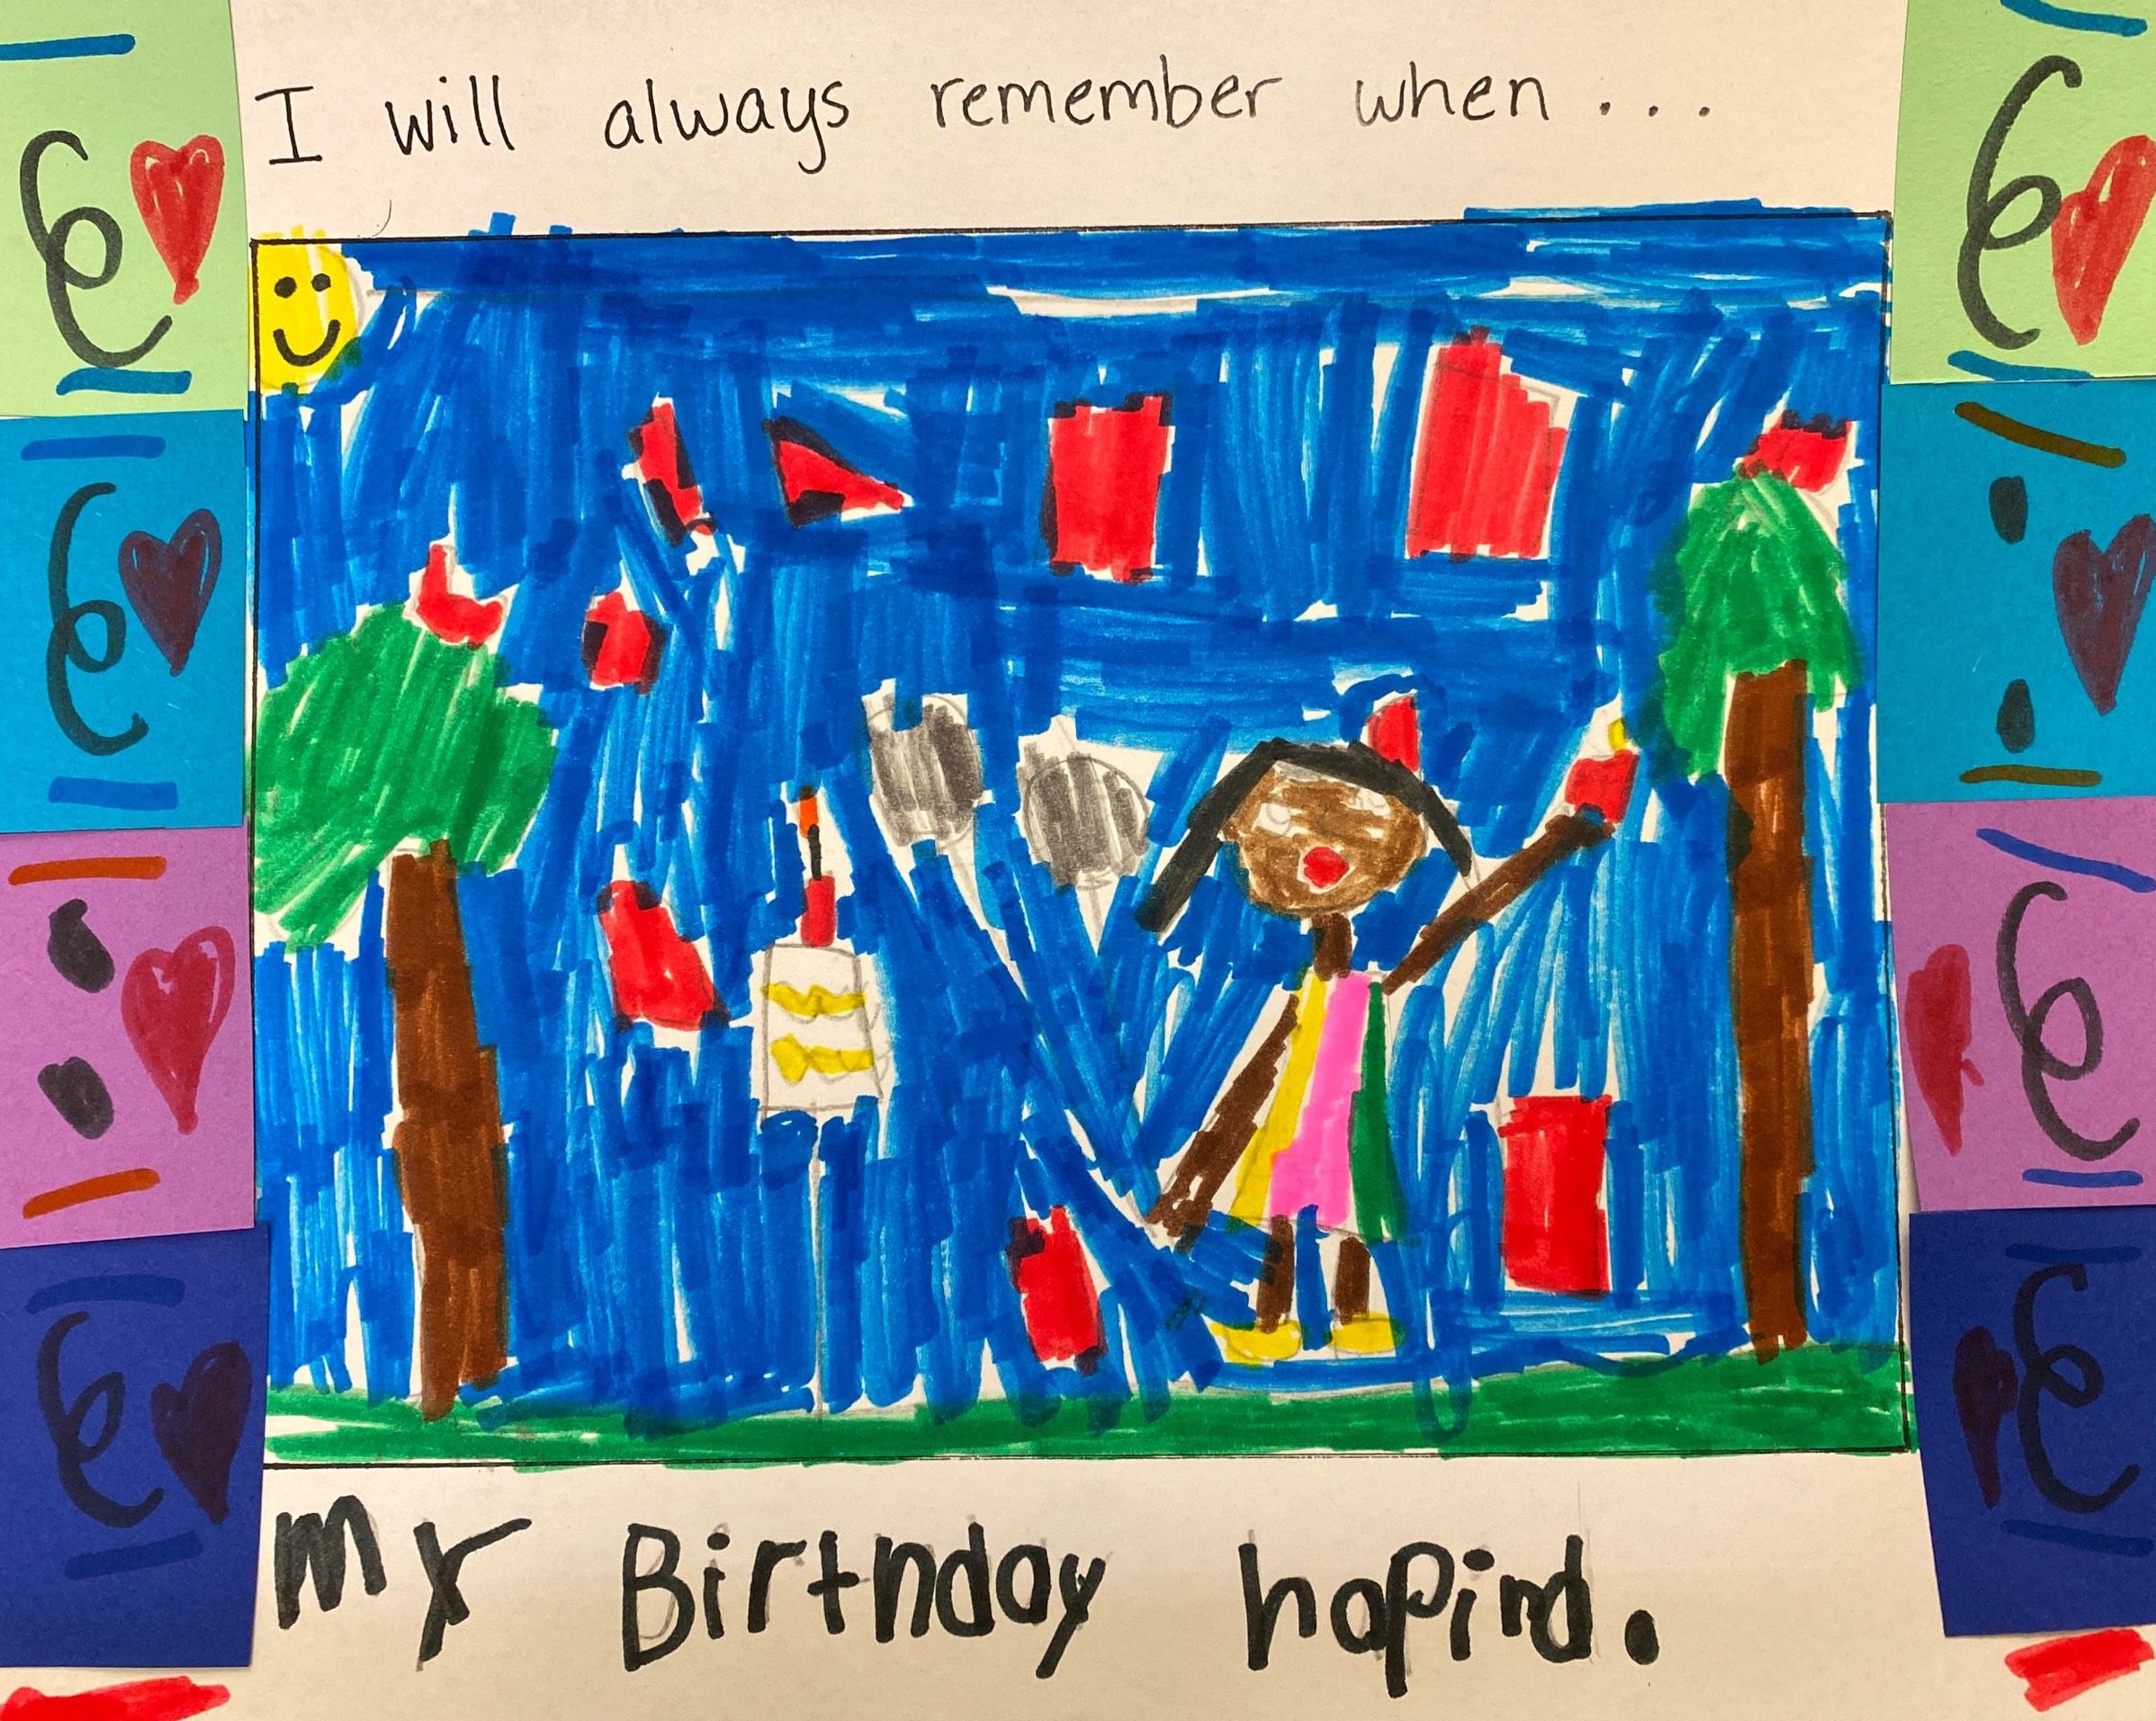 I will always remember when...
My Birtnday hapind.